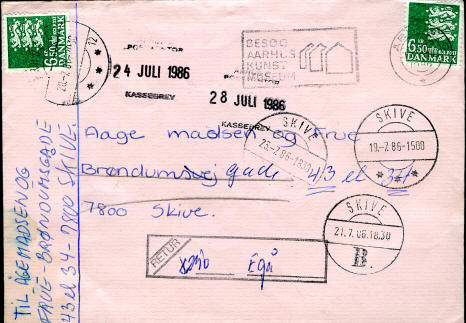 6.50
DANMARK
12
POSTKONTOR
24 JULI 1986
KASSEBREV
28 JULI 1986
KASSEBREV
BESØG
AARHUS
KUNST
MUSEUM
6.50
DANMARK
SKIVE
19-7.86-1500
SKIVE
SKIVE
21.7.86.18.30
B.
Aage madsen og Frue
Brøndumsvej gade 43 el 34
7800 Skive.
RETUR
Egå
TIL ÅGE MADSEN OG
FRUE - BRØNDUMSGADE
43 el 34 - 7800 SKIVE.